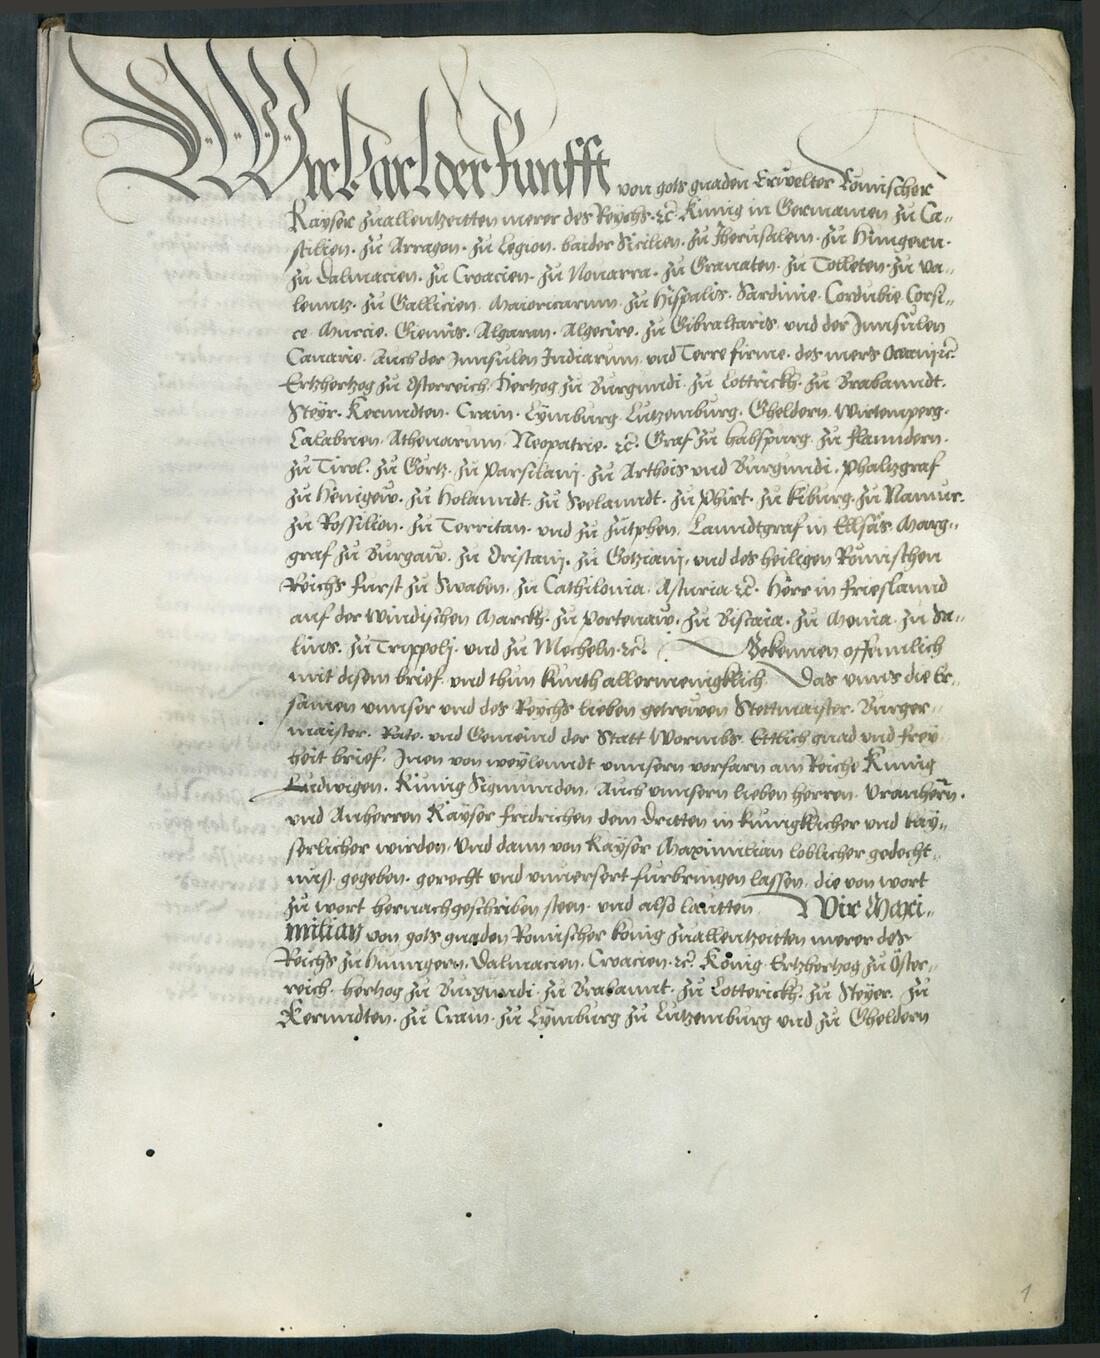 Wir Karl der funfft von gots gnaden Erwelter Romischer
Kayser zuallentzeitten merer des Reychs. ꝛc̃. Kunig in Germanien zu Ca„
stilien. zu Arragon. zu Legion. baider Sicilien. zu Jherusalem. zu Hungern.
zu Dalmacien. zu Croacien. zu Nouarra. zu Granaten. zu Tolleten. zu Va„
lenntz. zu Gallicien. Maioricarum. zu Hispalis. Sardinie. Cordubie. Corsi„
ce. Murcie. Giennis. Algaran. Algecire. zu Gibraltaris. und der Jnnsulen
Canarie. Auch der Jnnsulen Indiarum und Terre firme. des mers Oceani ꝛc̃.
Ertzhertzog zu Osterreich. Hertzog zu Burgundi. zu Lottrickh. zu Brabanndt.
Steyr. Kernndten. Crain. Lymburg. Lutzemburg. Gheldern. Wirtemperg.
Calabrien. Athenarum. Neopatrie. ꝛc̃. Graf zu Habspurg. zu Flanndern.
zu Tirol. zu Gortz. zu Parsilani. zu Arthois und Burgundi. Phaltzgraf
zu Henigew. zu Holanndt. zu Seelanndt. zu Phirt. zu Kiburg. zu Namur.
zu Rossilion. zu Territan. und zu Zutphen. Lanndtgraf in Ellsas. Marg„
graf zu Burgaw. zu Oristani. zu Gotziani. und des heiligen Romischen
Reichs Furst zu Swaben. zu Cathilonia. Asturia ꝛc̃. Herr in Frieslannd
auf der Windischen Marckh. zu Portenaw. zu Biscaia. zu Monia. zu Sa„
lins. zu Trippoli. und zu Mecheln. ꝛc̃. Bekennen offennlich
mit disem brief. und thun kunth allermenigklich. Das unns die Er„
samen unnser und des Reychs lieben getrewen Stettmaister. Burger„
maister. Rate. und Gemeind der Statt Wormbs. Ettlich gnad und frey
heit brief. Jnen von weylenndt unnsern vorfarn am Reiche Kunig
Ludwigen. Kunig Sigmunden. Auch unnsern lieben herren. Uranhern.
und Anherren Kayser Fridrichen dem Dritten in kunigklicher und kay„
serlicher wirden. Und dann von Kayser Maximilian loblicher gedecht„
nuß. gegeben. gerecht und unuersert furbringen lassen. die von wort
zu wort hernachgeschriben steen. und also lautten. Wir Maxi„
milian von gots gnaden Romischer konig zuallentzeitten merer des
Reichs zu Hunngern. Dalmacien. Croacien. ꝛc̃. Konig. Ertzhertzog zu Öster„
reich. hertzog zu Burgundi. zu Brabannt. zu Lotterickh. zu Steyer. zu
Kernndten. zu Crain. zu Lymburg zu Lutzemburg und zu Gheldern
1